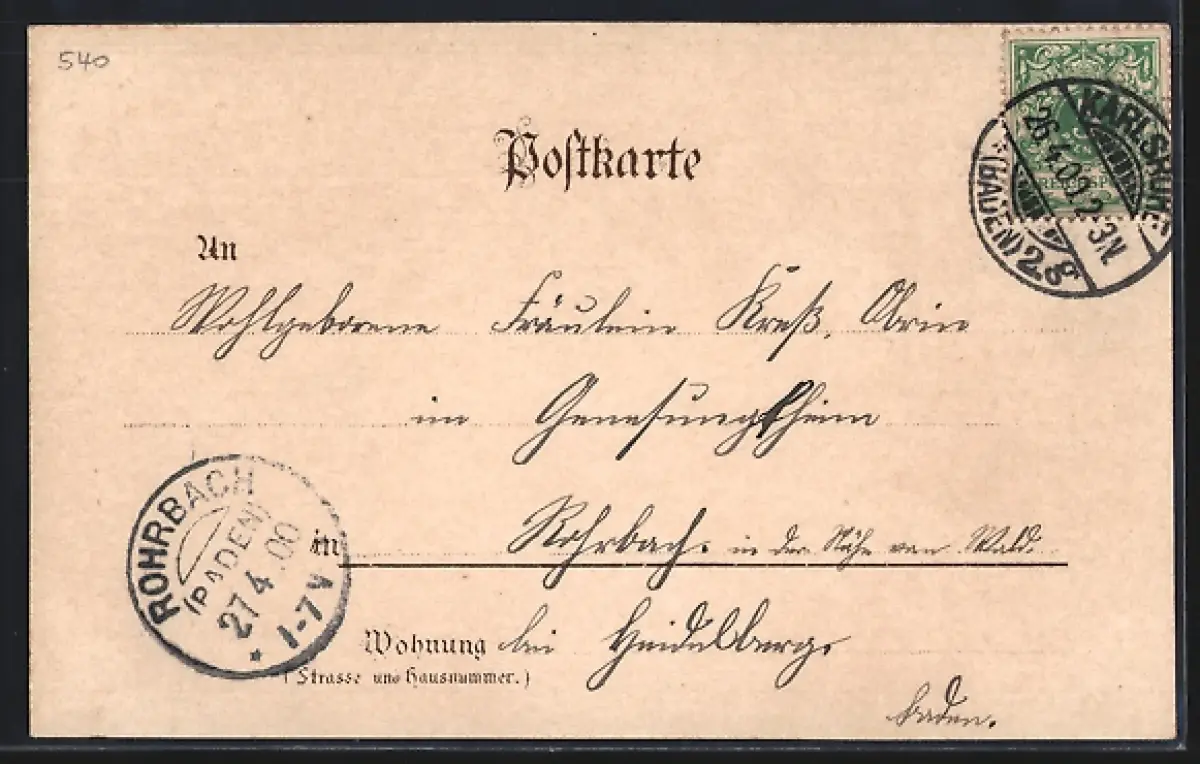 540
Postkarte
KARLSRUHE
26.4.00. 2-3N.
(BADEN) 2.g
REICHSP
An
Wohlgeborene Fräulein Kreß,
im Genesungsheim
ROHRBACH
(BADEN)
27 4 00
1-7V
in Rohrbach. in der Nähe von Wald.
Wohnung bei Heidelberg.
(Strasse und Hausnummer.)
Baden.